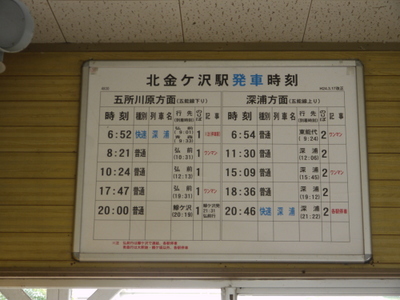 北金ケ沢駅発車時刻
五所川原方面(五能線下り)
深浦方面(五能線上り)
時刻 種別 列車名 行先 のりば 記事
時刻 種別 列車名 行先 のりば 記事
6:52 快速 深浦 弘前 1
6:54 普通 東能代 2 ワンマン
8:21 普通 弘前 (10:31) 1 ワンマン
11:30 普通 深浦 (12:06) 2
10:24 普通 弘前 (12:13) 1
15:09 普通 深浦 (15:45) 2 ワンマン
17:47 普通 弘前 1 ワンマン
18:36 普通 深浦 (19:12) 2
20:00 普通 鰺ケ沢 (20:19) 1
20:46 快速 深浦 深浦 (21:22) 2